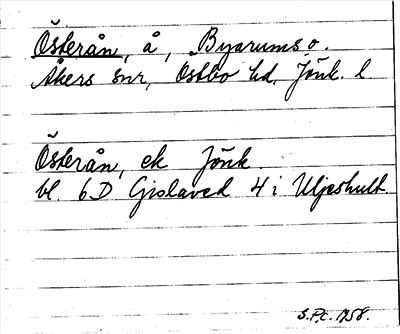 Österån, å, Byarums o.
Åkers snr, Östbo hd, Jönk. l
Österån, ek Jönk.
bl. 6D Gislaved 4 i Uljeshult
S.Pt. 1958.